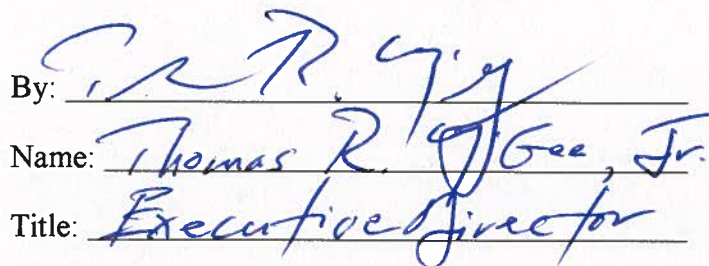 By:
Name: Thomas R. Gee, Jr.
Title: Executive Director